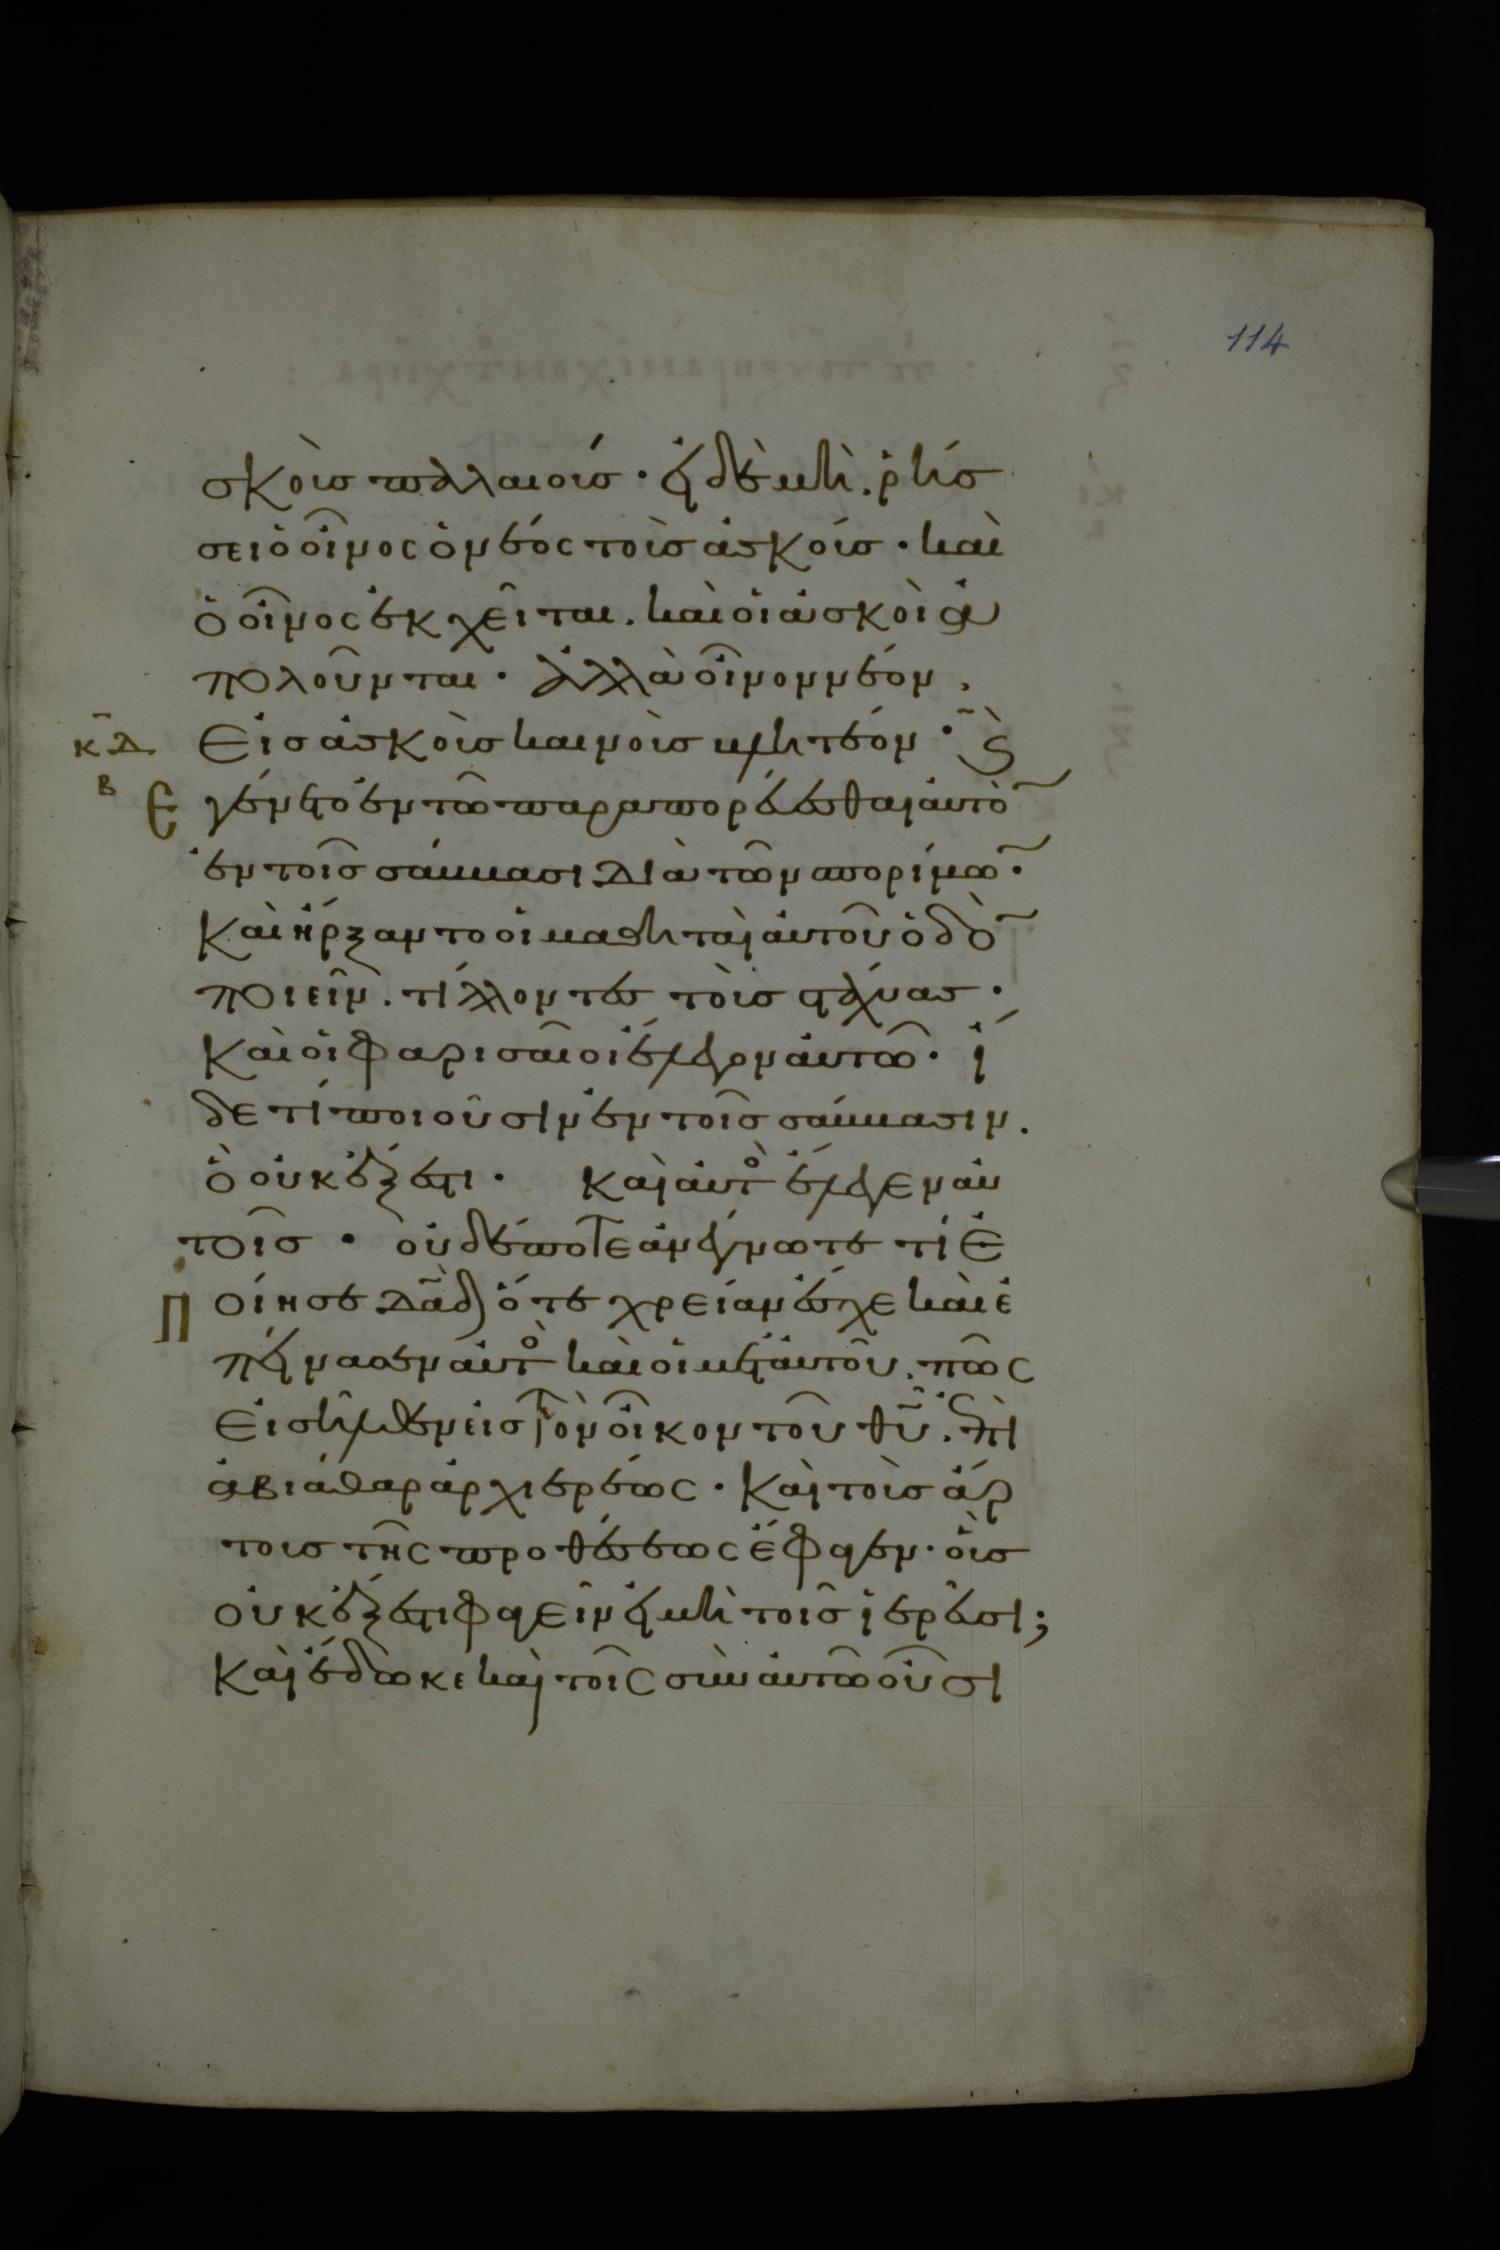 114
σκοὺς παλαιούς · εἰ δὲ μὴ . ῥήσ
σει ὁ οἶνος ὁ νέος τοὺς ἀσκούς · καὶ
ὁ οἶνος ἐκχεῖται . καὶ οἱ ἀσκοὶ ἀ
πολοῦνται · ἀλλὰ οἶνον νέον .
Εἰς ἀσκοὺς καινοὺς βλητέον · Ϛ
κδ
β
Ε γένετο ἐν τῶ παραπορεύεσθαι αὐτὸ̅
ἐν τοῖς σάββασι διὰ τῶν σπορίμω̅ ·
Καὶ ἤρξαντο οἱ μαθηταὶ αὐτοῦ ὁδὸ̅
ποιεῖν . τίλλοντες τοὺς στάχυας ·
Καὶ οἱ φαρισαῖοι ἔλεγον αὐτῶ · ἴ
δε τί ποιοῦσιν ἐν τοῖς σάββασιν .
ὃ οὐκ ἔξεστι · Καὶ αὐτὸς ἔλεγεν αὐ
τοῖς · οὐδέποτε ἀνέγνωτε τί ἐ
Π οίησε δα̅δ ὅτε χρείαν ἔσχε καὶ ἐ
πείνασεν αὐτὸς καὶ οἱ μετ' αὐτοῦ . πῶς
Εἰσῆλθεν εἰς τὸν οἶκον τοῦ θυ̅ . ἐπὶ
ἀβιάθαρ ἀρχιερέως · Καὶ τοὺς ἄρ
τους τῆς προθέσεως ἔφαγεν · οὓς
οὐκ ἔξεστι φαγεῖν εἰ μὴ τοῖς ἱερεῦσι ;
Καὶ ἔδωκε καὶ τοῖς σὺν αὐτῶ οὖσι